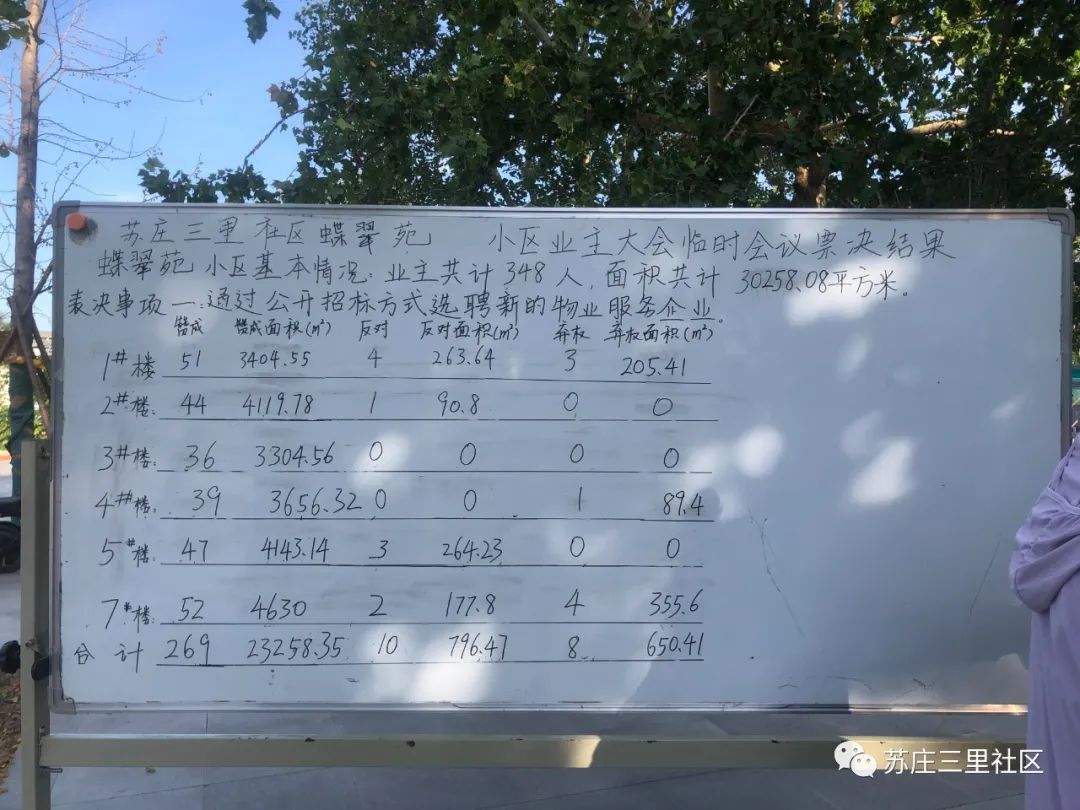 苏庄三里社区蝶翠苑 小区业主大会临时会议票决结果
蝶翠苑小区基本情况:业主共计348人,面积共计 30258.08平方米。
表决事项一:通过公开招标方式选聘新的物业服务企业。
赞成 赞成面积(m²) 反对 反对面积(m²) 弃权 弃权面积(m²)
1#楼 51 3404.55 4 263.64 3 205.41
2#楼: 44 4119.78 1 90.8 0 0
3#楼: 36 3304.56 0 0 0 0
4#楼: 39 3656.32 0 0 1 89.4
5#楼: 47 4143.14 3 264.23 0 0
7#楼: 52 4630 2 177.8 4 355.6
合计 269 23258.35 10 796.47 8 650.41
苏庄三里社区